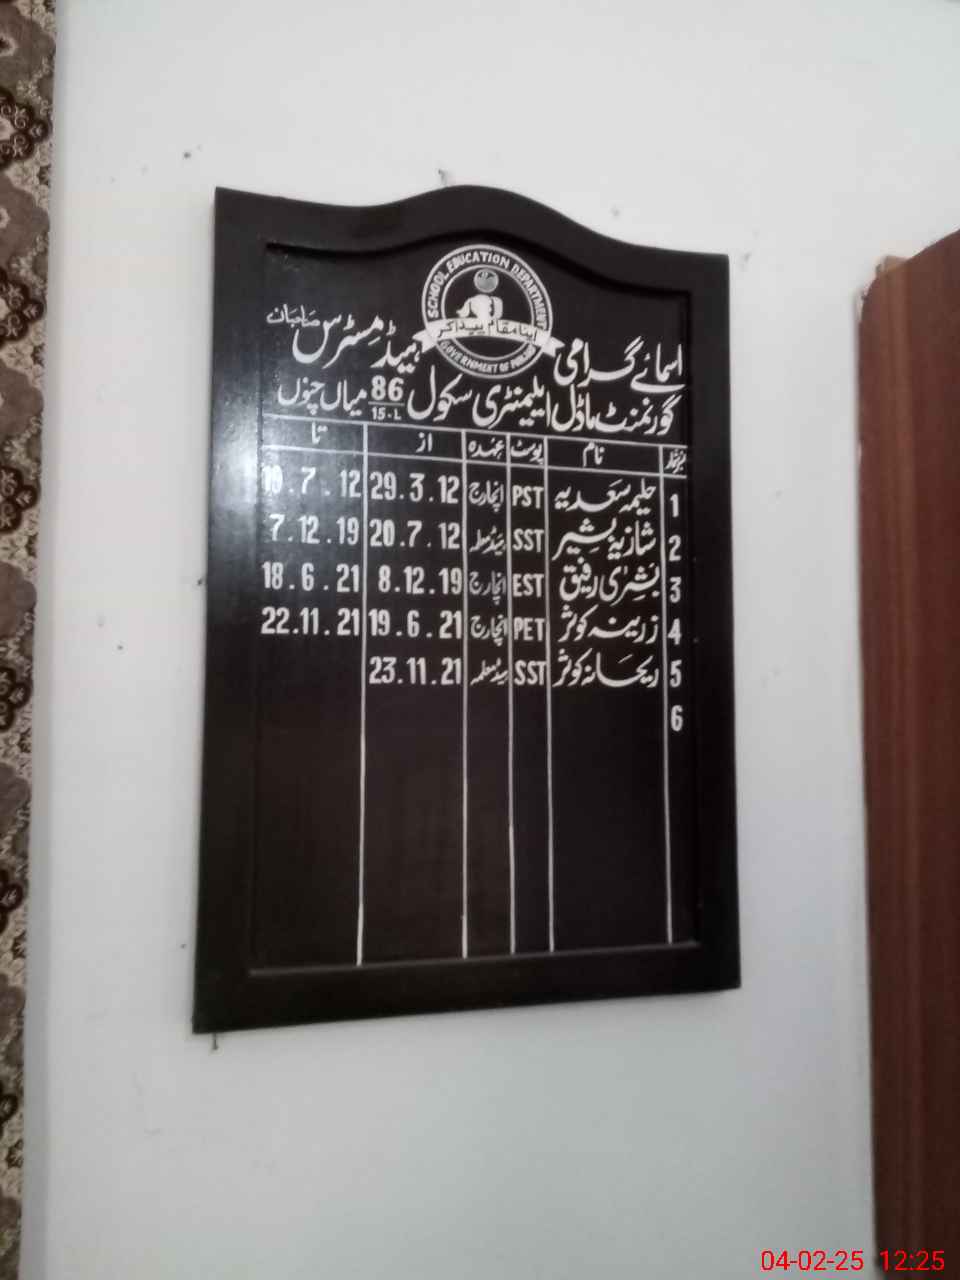 SCHOOL EDUCATION DEPARTMENT
اپنا مقام پیدا کر
GOVERNMENT OF PUNJAB
اسمائے گرامی ہیڈ مسٹرس صاحبان
گورنمنٹ ماڈل ایلیمنٹری سکول 86/15-L میاں چنوں
نمبرشمار نام پوسٹ عہدہ از تا
1 حلیمہ سعدیہ PST انچارج 29.3.12 19.7.12
2 شازیہ بشیر SST ہیڈ معلمہ 20.7.12 7.12.19
3 بشریٰ رفیق EST انچارج 8.12.19 18.6.21
4 زرینہ کوثر PET انچارج 19.6.21 22.11.21
5 ریحانہ کوثر SST ہیڈ معلمہ 23.11.21
6
04-02-25 12:25